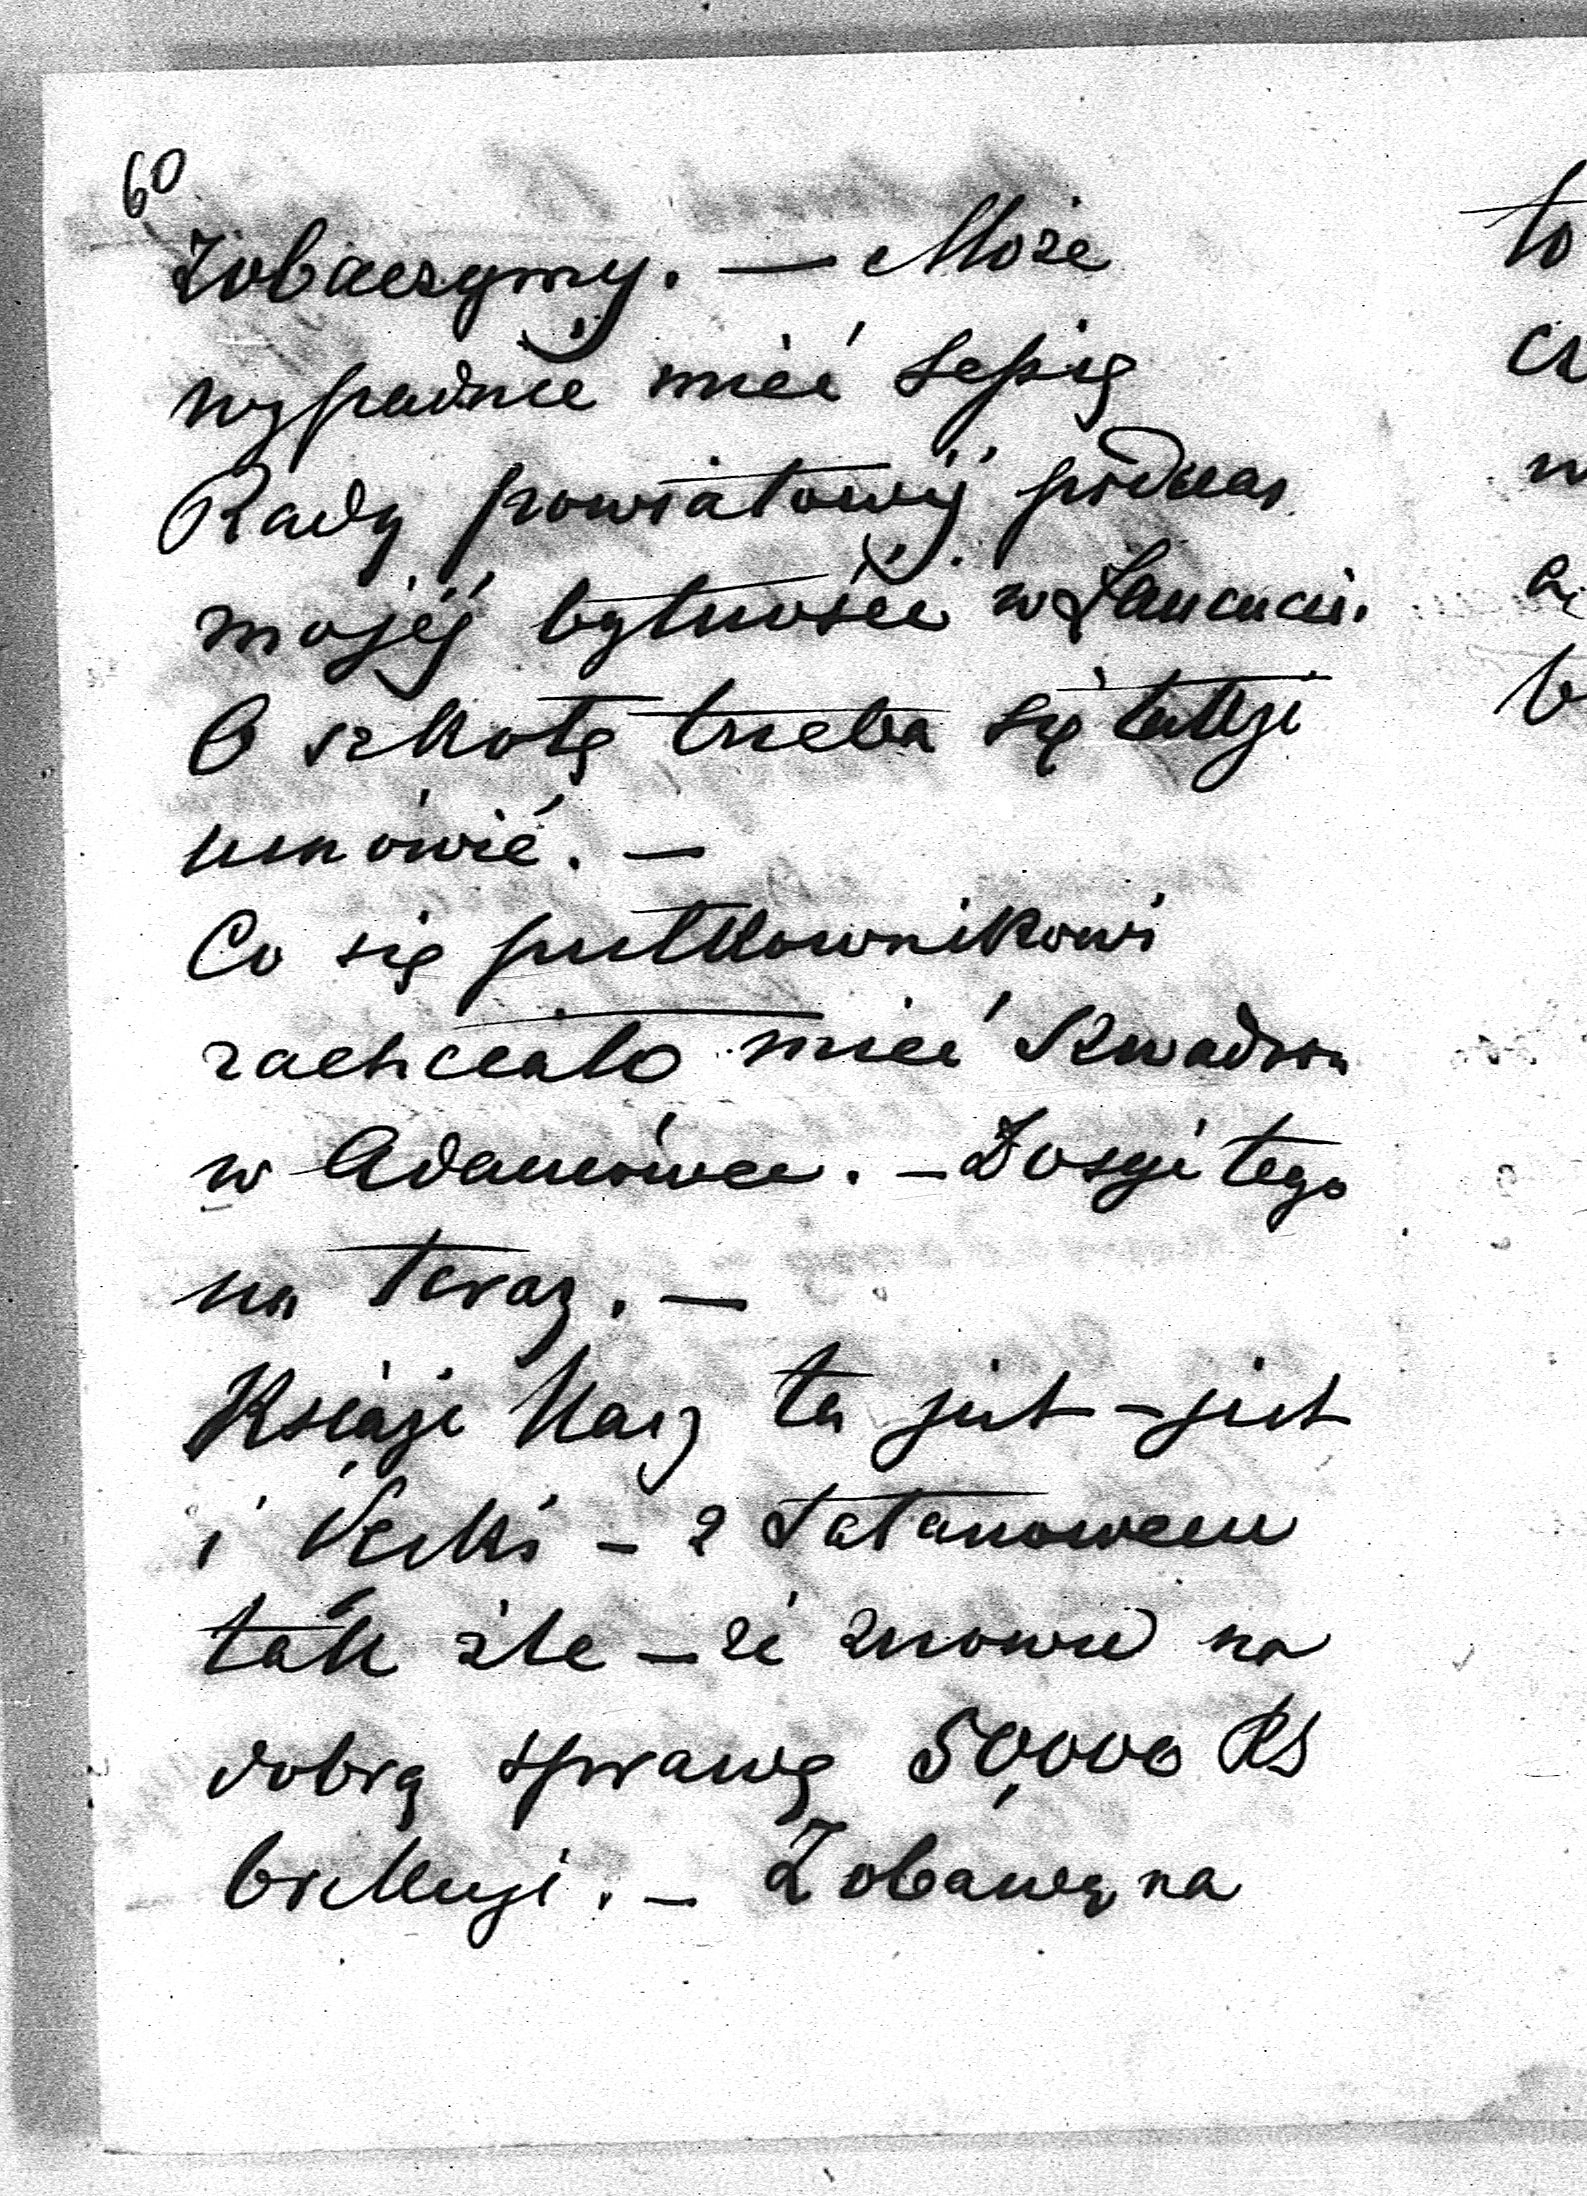 60
Zobaczymy. — Może
wypadnie mieć sesię
Rady powiatowéj podczas
mojéj bytności w Łańcucie.
O szkołę trzeba się także
umówić. —
Co się pułkownikowi
zachciało mieć Szwadron
w Adamówce. — Dosyć tego
na teraz. —
Książe Nasz ta jest – jest
i – z Tatanowem
tak źle – że znowu na
dobrą sprawę 50,000 RS
brakuje. – Zobawę na